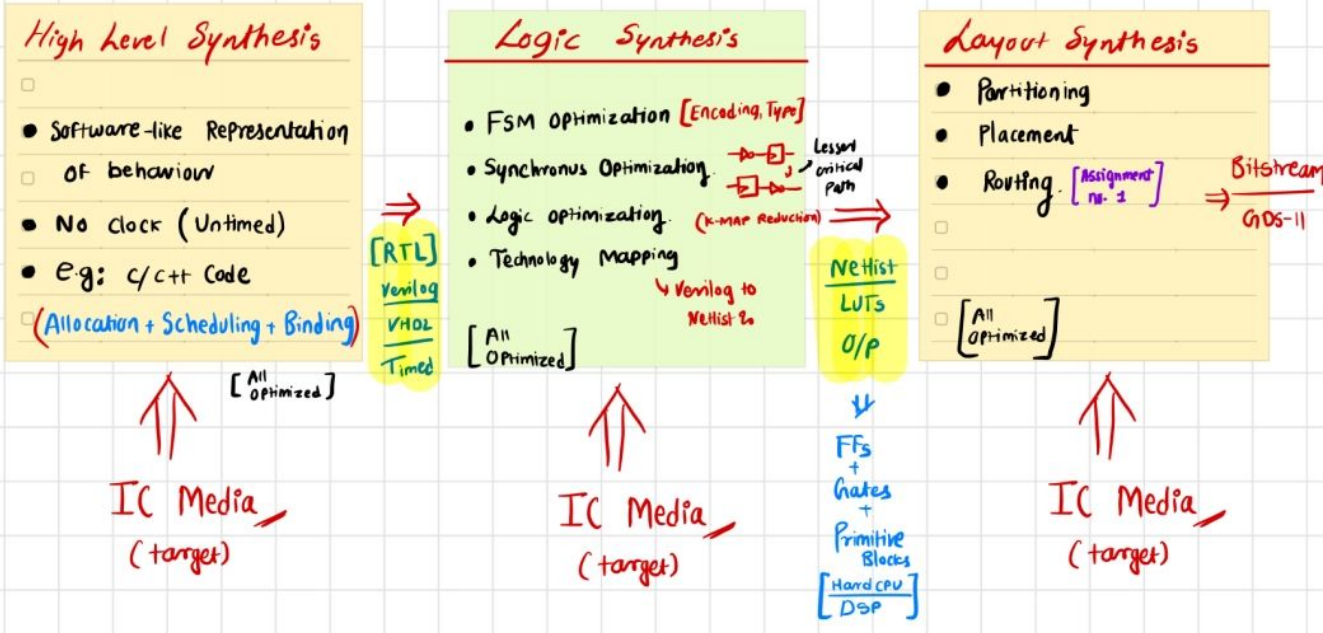 High Level Synthesis
Software-like Representation
of behaviour
No Clock (Untimed)
e.g: c/c++ Code
(Allocation + Scheduling + Binding)
[All
Optimized]
IC Media
(target)
[RTL]
Verilog
VHDL
Timed
Logic Synthesis
FSM Optimization [Encoding, Type]
Synchronus Optimization.
Lessen
critical
Path
Logic optimization. (K-MAP Reduction)
Technology Mapping
Verilog to
Netlist
[All
Optimized]
IC Media
(target)
Netlist
LUTs
O/P
FFs
+
Gates
+
Primitive
Blocks
[Hard CPU
DSP]
Layout Synthesis
Partitioning
Placement
Routing. [Assignment
no. 1]
[All
Optimized]
Bitstream
GDS-II
IC Media
(target)